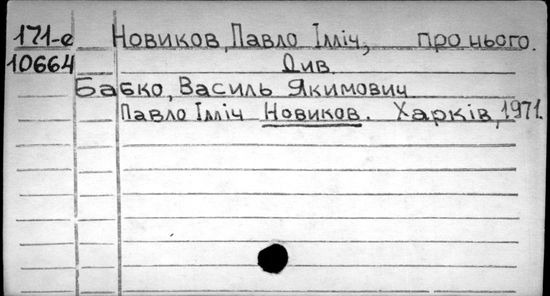 171-е Новиков, Павло Ілліч, про нього.
10664 Див.
Бабко, Василь Якимович
Павло Ілліч Новиков. Харків, 1971.